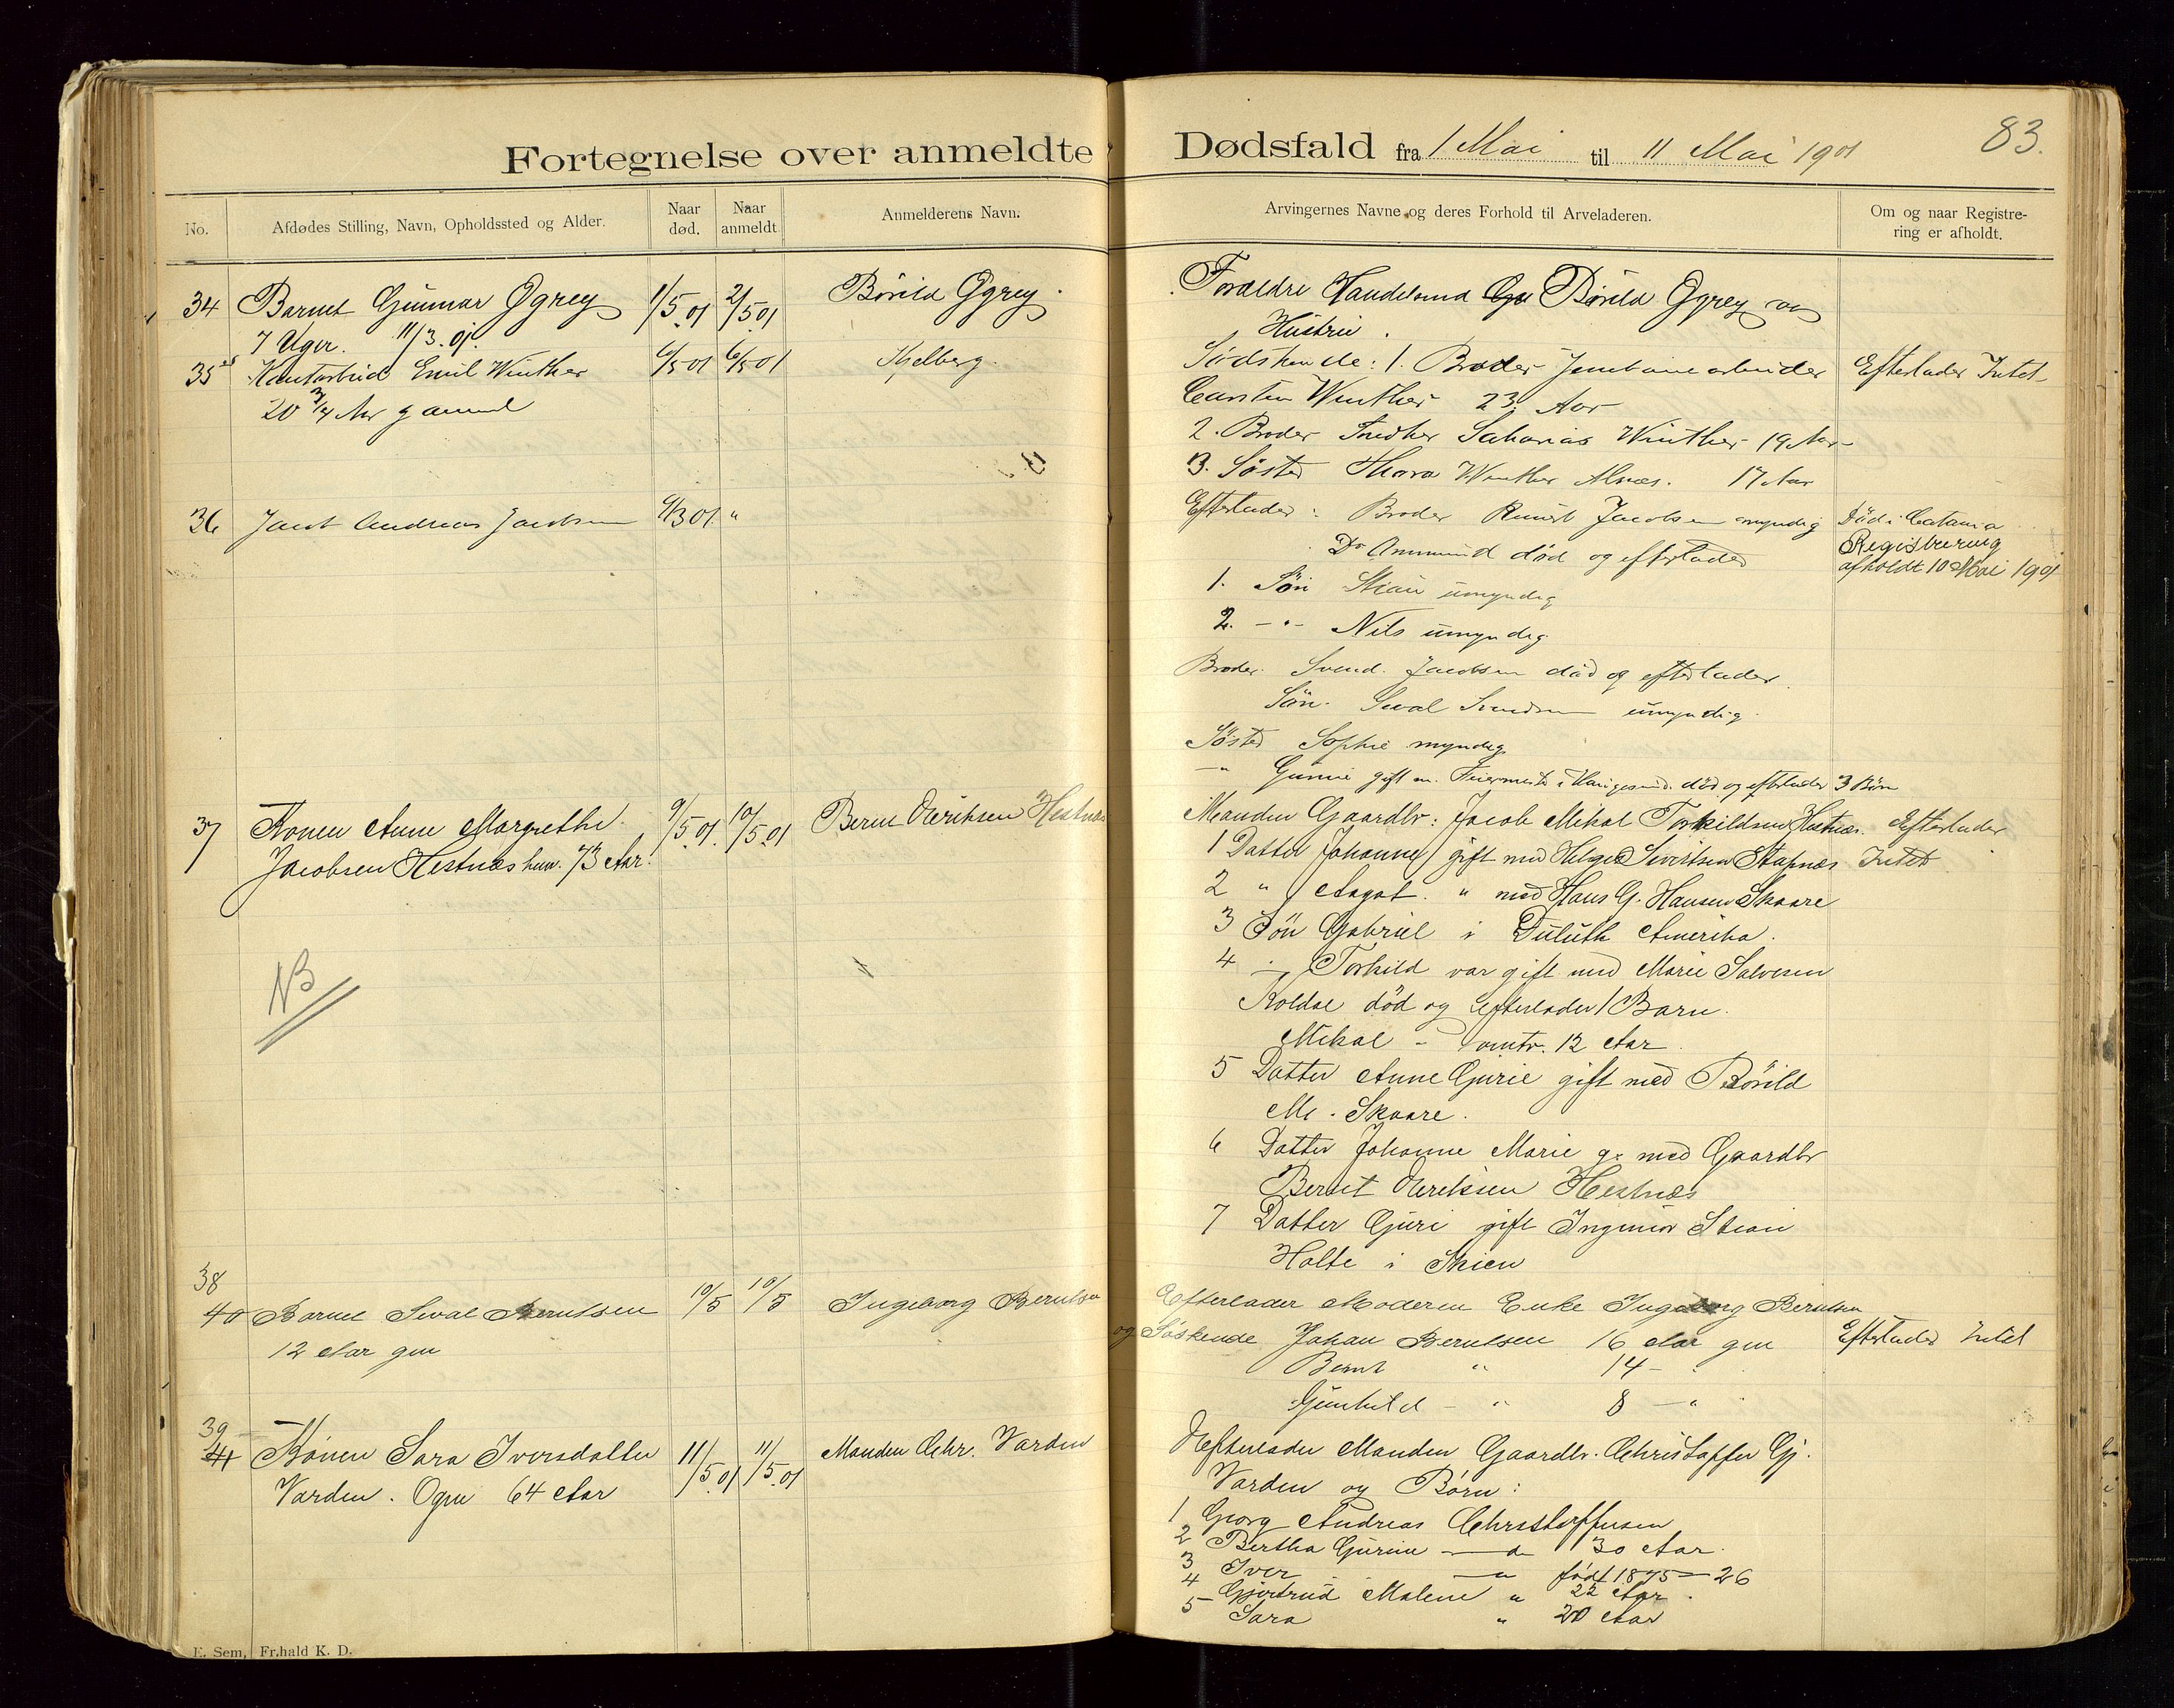 Fortegnelse over anmeldte Dødsfald fra 1 Mai til 11 Mai 1901
83.
No.
Afdødes Stilling, Navn, Opholdssted og Alder.
Naar død.
Naar anmeldt
Anmelderens Navn.
Arvingernes Navne og deres Forhold til Arveladeren.
Om og naar Registre-
ring er afholdt.
34 Barnet Gunnar Ggrey 1/5.01 2/5.01 Børild Ggrey.
7 Uger. 11/3.01.
Forældre Børild Ggrey og
Hustru.
35 Emil Winther 6/5 01 6/5 01 Kjelberg.
20 3/4 Aar gammel
Sødskende: 1. Broder arbeider Efterlader Intet
Carsten Winther 23 Aar
2. Broder Snedker Sakarias Winther 19 Aar
3. Søster Thora Winther 17 Aar
36 Jacob Andreas Jacobsen 4/3 01. "
Efterlader: Broder Jacobsen myndig Död i Catania
Do Ammund död og efterlader Registrering
afholdt 10 Mai 1901
1. Sön Stian umyndig
2. - " - Nils umyndig
Broder. Svend. Jacobsen död og efterlader
Sön. Sival Svendsen umyndig.
Søster Sophie myndig
- " Gunie gift m. Feiermester i död og efterlader 3 Börn
37 Konen Anne Margrethe 9/5.01. 10/5.01 Bernt Omriksen Hestnæs
Jacobsen Hestnæs hum. 73 Aar.
Manden Gaardbr: Jacob Mikal Torkildsen Hestnæs. Efterlader
1 Datter Johanne gift med Helge Sivertsen Stapnæs Intet
2 " Aagot. " med Hans G. Hansen Skaare
3 Sön Gabriel i Duluth Amerika.
4 - " Torkild var gift med Marie Salvesen
Koldal død og efterlader 1 Barn.
Mikal - omtr. 12 Aar.
5 Datter Anne Gurie gift med Børild
M. Skaare.
6 Datter Johanne Marie g. med Gaardbr
Bernt Omriksen Hestnæs
7 Datter Guri gift Ingeniør Stian
Holte i Skien
NB
38
40 Barnet Sival Berntsen 10/5 10/5 Ingeborg Berntsen
12 Aar gm
Efterlader Moderen Enke Ingeborg Berntsen
og Søskende Johan Berntsen 16 Aar gm Efterlader Intet
Bernt " 14 - "
Gunhild - " 8 - "
39
41 Konen Sara Iversdatter 11/5.01 11/5.01 Manden Chr. Varden
Varden. Ogn 64 Aar
Efterlader Manden Gaardbr. Christoffer Gj.
Varden og Børn:
1 Georg Andreas Christoffersen
2 Bertha Gurine - " 30 Aar.
3 Iver - " født 1875 - 26
4 Gjertrud Malene " 22 Aar.
5 Sara " 20 Aar
E. Sem, Fr.hald K. D.